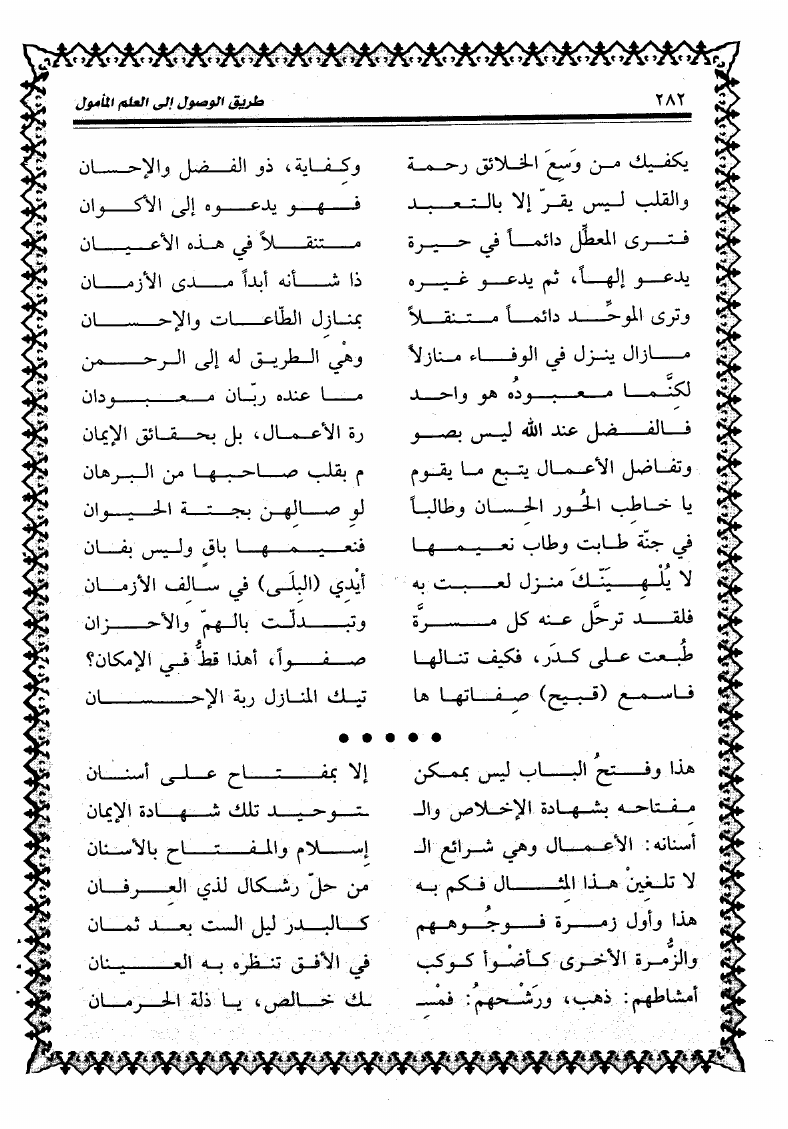 ٢٨٢ طريق الوصول إلى العلم المأمول
يكفيك من وَسِعَ الخلائق رحمة وكفاية، ذو الفضل والإحسان
والقلب ليس يقرّ إلا بالتعبد فهو يدعوه إلى الأكوان
فترى المعطِّل دائماً في حيرة متنقلاً في هذه الأعيان
يدعو إلهاً، ثم يدعو غيره ذا شأنه أبداً مدى الأزمان
وترى الموحِّد دائماً متنقلاً بمنازل الطّاعات والإحسان
مازال ينزل في الوفاء منازلاً وهْي الطريق له إلى الرحمن
لكنَّما معبودُه هو واحد ما عنده ربّان معبودان
فالفضل عند الله ليس بصو رة الأعمال، بل بحقائق الإيمان
وتفاضل الأعمال يتبع ما يقوم م بقلب صاحبها من البرهان
يا خاطِب الحُور الحسان وطالباً لوِصالهن بجنة الحيوان
في جنّة طابت وطاب نعيمها فنعيمها باقٍ وليس بفان
لا يُلْهِيَنَّكَ منزل لعبت به أيْدِي (البِلَى) في سالِف الأزمان
فلقد ترحَّل عنه كل مسرَّة وتبدلّت بالهمّ والأحزان
طُبعت على كدَر، فكيف تنالها صفواً، أهذا قطُّ في الإمكان؟
فاسمع (قبيح) صِفاتها ها تيك المنازل ربة الإحسان
• • • • •
هذا وفتحُ الباب ليس بممكن إلا بمفتاح على أسنان
مفتاحه بشهادة الإخلاص والـ ـتوحيد تلك شهادة الإيمان
أسنانه: الأعمال وهي شرائع الـ إسلام والمفتاح بالأسنان
لا تلغِينْ هذا المثال فكم به من حلّ رشكال لذي العرفان
هذا وأول زمرة فوجُوههم كالبدر ليل الست بعد ثمان
والزُمرة الأخرى كأضْوأ كوكب في الأفق تنظره به العينان
أمشاطهم: ذهب، ورَشْحهمُ: فمْسـ ـك خالص، يا ذلة الحرمان